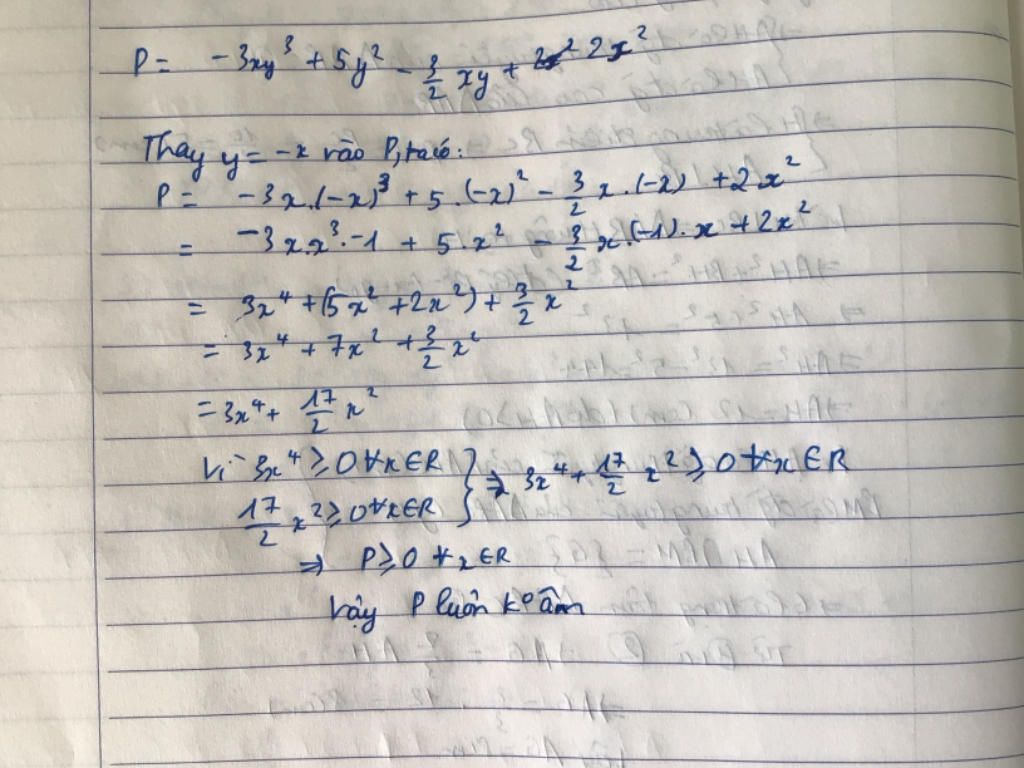 P = -3xy³ + 5y² - 3/2 xy + 2x²
Thay y = -x vào P, ta có:
P = -3x.(-x)³ + 5.(-x)² - 3/2 x.(-x) + 2x²
= -3x.x³.-1 + 5.x² - 3/2 x.(-1).x + 2x²
= 3x⁴ + (5x² + 2x²) + 3/2 x²
= 3x⁴ + 7x² + 3/2 x²
= 3x⁴ + 17/2 x²
Vì 3x⁴ ≥ 0 ∀x∈R } ⇒ 3x⁴ + 17/2 x² ≥ 0 ∀x ∈ R
17/2 x² ≥ 0 ∀x∈R
⇒ P ≥ 0 ∀x ∈R
Vậy P luôn ko âm